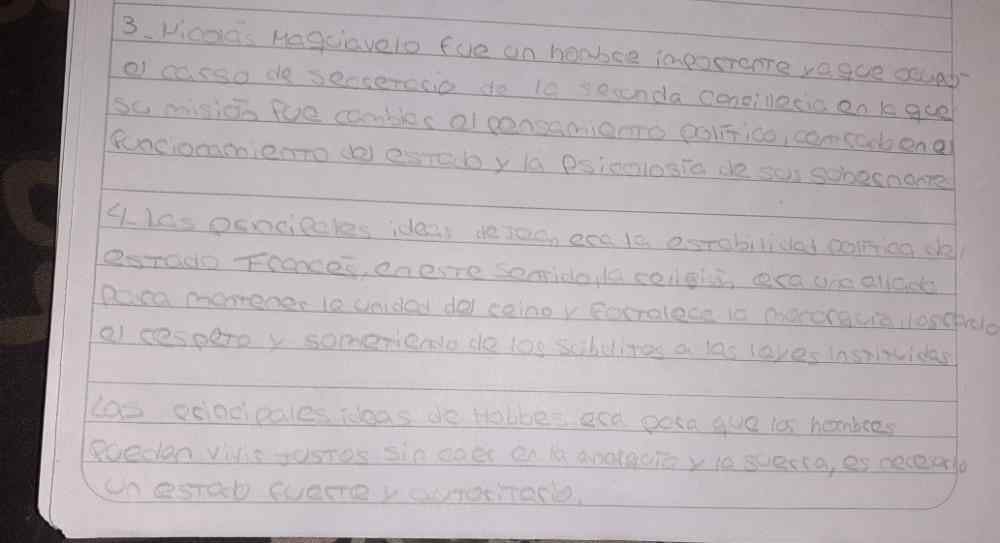 3. Nicolás Maquiavelo fue un hombre importante ya que ocupó
el cargo de secretario de la segunda cancillería en la que
su misión fue cambiar el pensamiento político, centrado en el
funcionamiento del estado y la psicología de sus gobernante
4. Las principales ideas de Jean era la estabilidad política del
estado Francés, en este sentido, la religión era una aliada
para mantener la unidad del reino y fortalece la monarquía,
el respeto y sometiendo de los súbditos a las leyes instituidas
Las principales ideas de Hobbes era para que los hombres
puedan vivir juntos sin caer en la anarquía y la guerra, es necesario
un estado fuerte y autoritario.